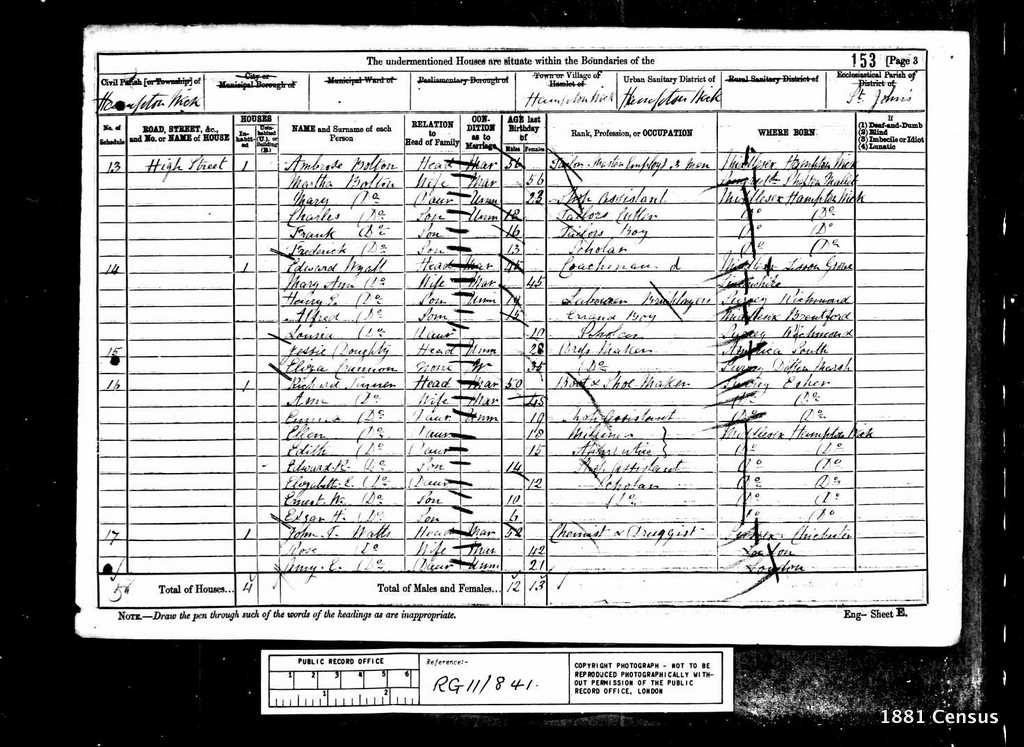 The undermentioned Houses are situate within the Boundaries of the
153 [Page 3
Civil Parish [or Township] of
City or Municipal Borough of
Municipal Ward of
Parliamentary Borough of
Town or Village of Hamlet of
Urban Sanitary District of
Rural Sanitary District of
Ecclesiastical Parish or District of
Hampton Wick
Hampton Wick
Hampton Wick
St. John's
No. of Schedule
ROAD, STREET, &c., and No. or NAME of HOUSE
HOUSES
Inhabited
Uninhabited (U.), or Building (B.)
NAME and Surname of each Person
RELATION to Head of Family
CONDITION as to Marriage
AGE last Birthday of
Males
Females
Rank, Profession, or OCCUPATION
WHERE BORN
If
(1) Deaf-and-Dumb
(2) Blind
(3) Imbecile or Idiot
(4) Lunatic
13 High Street 1 Ambrose Bolton Head Mar 56 Tailor Master 3 men Middlesex Hampton Wick
Martha Bolton Wife Mar 56 Shepton Mallet
Mary Do Daur Unm 23 Shop Assistant Middlesex Hampton Wick
Charles Do Son Unm 18 Tailors Cutter Do Do
Frank Do Son 16 Tailors Boy Do Do
Frederick Do Son 13 Scholar Do Do
14 1 Edward Wyatt Head Mar 45 Coachman d Lisson Grove
Mary Ann Do Wife Mar 45
Henry Do Son Unm Surrey Richmond
Alfred Do Son 15 Errand Boy Middlesex Brentford
Louisa Do Daur 10 Scholar Surrey Richmond
15 Jessie Doughty Head Unm 28 Maker America South
Eliza W 35 Do Surrey
16 1 Richard Head Mar 50 Boot & Shoe Maker Surrey Esher
Ann Do Wife Mar 45 Do Do
Emma Do Daur Unm 19 Shop Assistant Do Do
Ellen Do Daur 18 Milliner Middlesex Hampton Wick
Edith Do Daur 15 Apprentice Do Do
Edward Do Son 14 Shop Assistant Do Do
Elizabeth E. Do Daur 12 Scholar Do Do
Ernest W. Do Son 10 Do Do Do
Edgar H. Do Son 6 Do Do
17 1 John Watts Head Mar 52 Chemist & Druggist Sussex Chichester
Rose Do Wife Mar 42 London
Amy E. Do Daur Unm 21 London
Total of Houses... 4
Total of Males and Females... 12 13
NOTE.—Draw the pen through such of the words of the headings as are inappropriate.
Eng- Sheet E.
PUBLIC RECORD OFFICE
1 2 3 4 5 6
1 2
Reference:-
RG11/841.
COPYRIGHT PHOTOGRAPH - NOT TO BE
REPRODUCED PHOTOGRAPHICALLY WITH-
OUT PERMISSION OF THE PUBLIC
RECORD OFFICE, LONDON
1881 Census